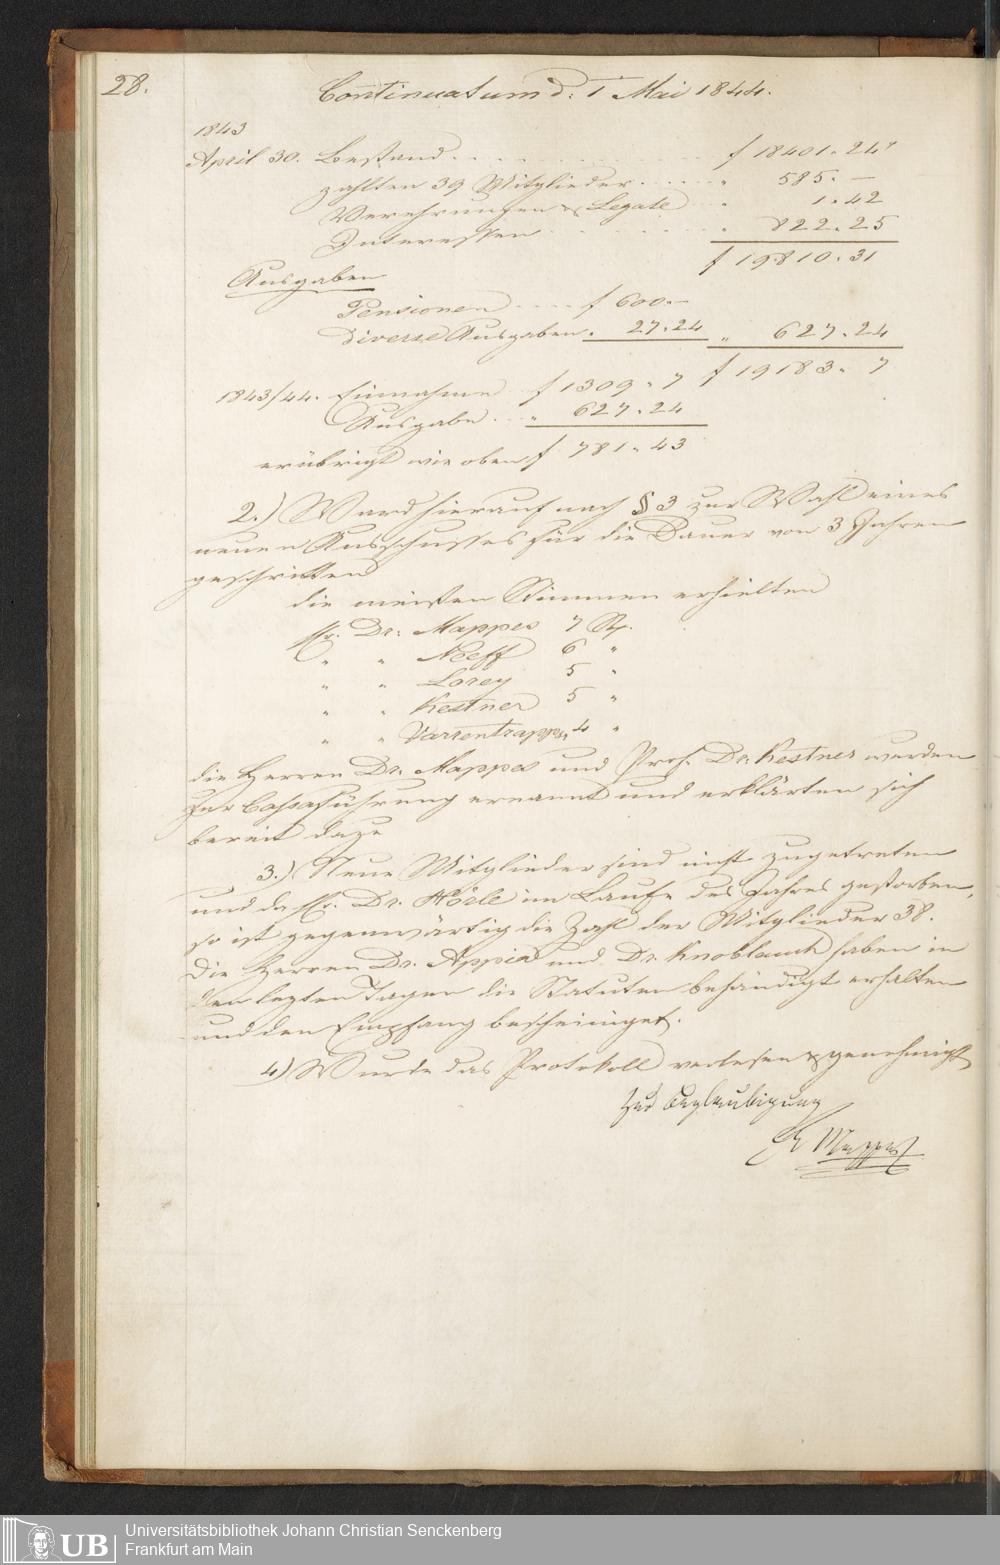 28. Continuatum d: 1 Mai 1844.
1843
April 30. Bestand . . . . . . . . . . f 18401. 24
zahlten 39 Mitglieder . . . . . „ 585. —
Verehrungen & Legate . . „ 1. 42
Interessen . . . . . . . . . „ 822. 25
f 19810. 31
Ausgaben
Pensionen . . . . f 600. —
Diverse Ausgaben . 27. 24 „ 627. 24
f 19183. 7
1843/44. Einnahme f 1309. 7
Ausgabe . . „ 627. 24
erübrigt wie oben f 781. 43
2.) Ward hierauf nach § 3 zur Wahl eines
neuen Ausschusses für die Dauer von 3 Jahren
geschritten
die meisten Stimmen erhielten
Hr. Dr: Mappes 7 St.
„ „ Neeff 6 „
„ „ Lorey 5 „
„ „ Kestner 5 „
„ „ Varrentrapp 4 „
die Herren Dr. Mappes und Prof. Dr. Kestner wurden
zur Cassaführung ernannt und erklärten sich
bereit dazu
3.) Neue Mitglieder sind nicht zugetreten
und da Hr. Dr. Hörle im Laufe des Jahres gestorben,
so ist gegenwärtig die Zahl der Mitglieder 38.
Die Herren Dr. Appia und Dr. Knoblauch haben in
den lezten Tagen die Statuten behändigt erhalten
und den Empfang bescheiniget.
4) Wurde das Protokoll verlesen & genehmigt
Zur Beglaubigung
Dr Mappes
UB Universitätsbibliothek Johann Christian Senckenberg
Frankfurt am Main